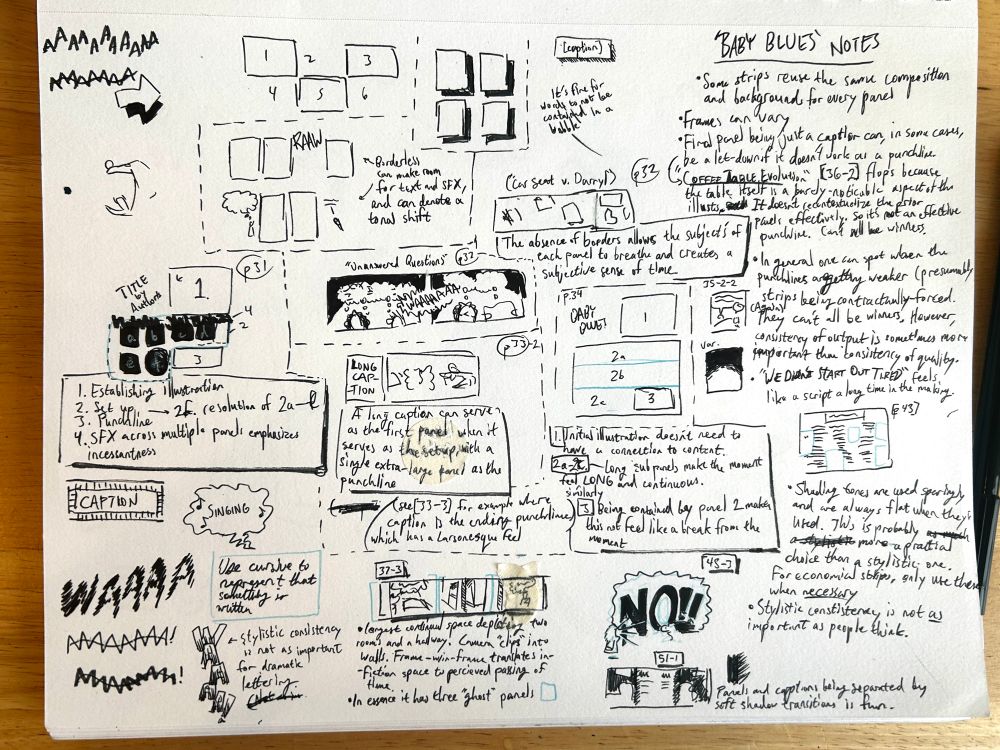 AAAAAAAA
AAAAAAA
1
2
3
4
5
6
[caption]
It's fine for
words to not be
contained in a
bubble
RAAW
Borderless
can make room
for text and SFX,
and can denote a
tonal shift
("Car seat v. Darryl")
p32
The absence of borders allows the subjects of
each panel to breathe and creates a
subjective sense of time.
p31
TITLE
by
Authors
1
4
2
a
b
e
3
1. Establishing illustration
2. Set up → 2F resolution of 2a-e
3. Punchline
4. SFX across multiple panels emphasizes
incessantness
"Unanswered Questions"
p32
AAAAA
p33-2
LONG
CAP-
TION
A long caption can serve
as the first panel when it
serves as the setup, with a
single extra-large panel as the
punchline
(see [33-3] for example where
caption is the ending punchline,
which has a Larsonesque feel
p.34
BABY
BLUES
1
2a
2b
2c
3
35-2-2
var.
1. Initial illustration doesn't need to
have a connection to content.
2a-c Long 2nd panels make the moment
feel LONG and continuous.
similarly
3 Being contained by panel 2 makes
this not feel like a break from the
moment
CAPTION
SINGING
WAAAA
AAAAAAAA!
AAAAAAA!
Use cursive to
represent that
something is
written
Stylistic consistency
is not as important
for dramatic
lettering
37-3
• Largest continual space depicting two
rooms and a hallway. Camera "clips" into
walls. Frame-w/in-frame translates in-
fiction space to percieved passing of
time.
• In essence it has three "ghost" panels
43-3
NO!!
51-1
Panels and captions being separated by
soft shadow transitions is fun.
'BABY BLUES' NOTES
• Some strips reuse the same composition
and backgrounds for every panel
• Frames can vary
• Final panel being just a caption can, in some cases,
be a let-down if it doesn't work as a punchline.
("COFFEE TABLE EVOLUTION" [36-2] flops because
the table itself is a barely-noticable aspect of the
illusts. It doesn't recontextualize the prior
panels effectively. So it's not an effective
punchline. Can't all be winners.
• In general one can spot when the
punchlines are getting weaker (presumably
strips being contractually-forced.
They can't all be winners. However,
consistency of output is sometimes more
important than consistency of quality.
• "WE DIDN'T START OUT TIRED" feels
like a script a long time in the making.
[p43]
• Shading tones are used sparingly
and are always flat when they're
used. This is probably
a more a practical
choice than a stylistic one.
For economical strips, only use these
when necessary
• Stylistic constistency is not as
important as people think.